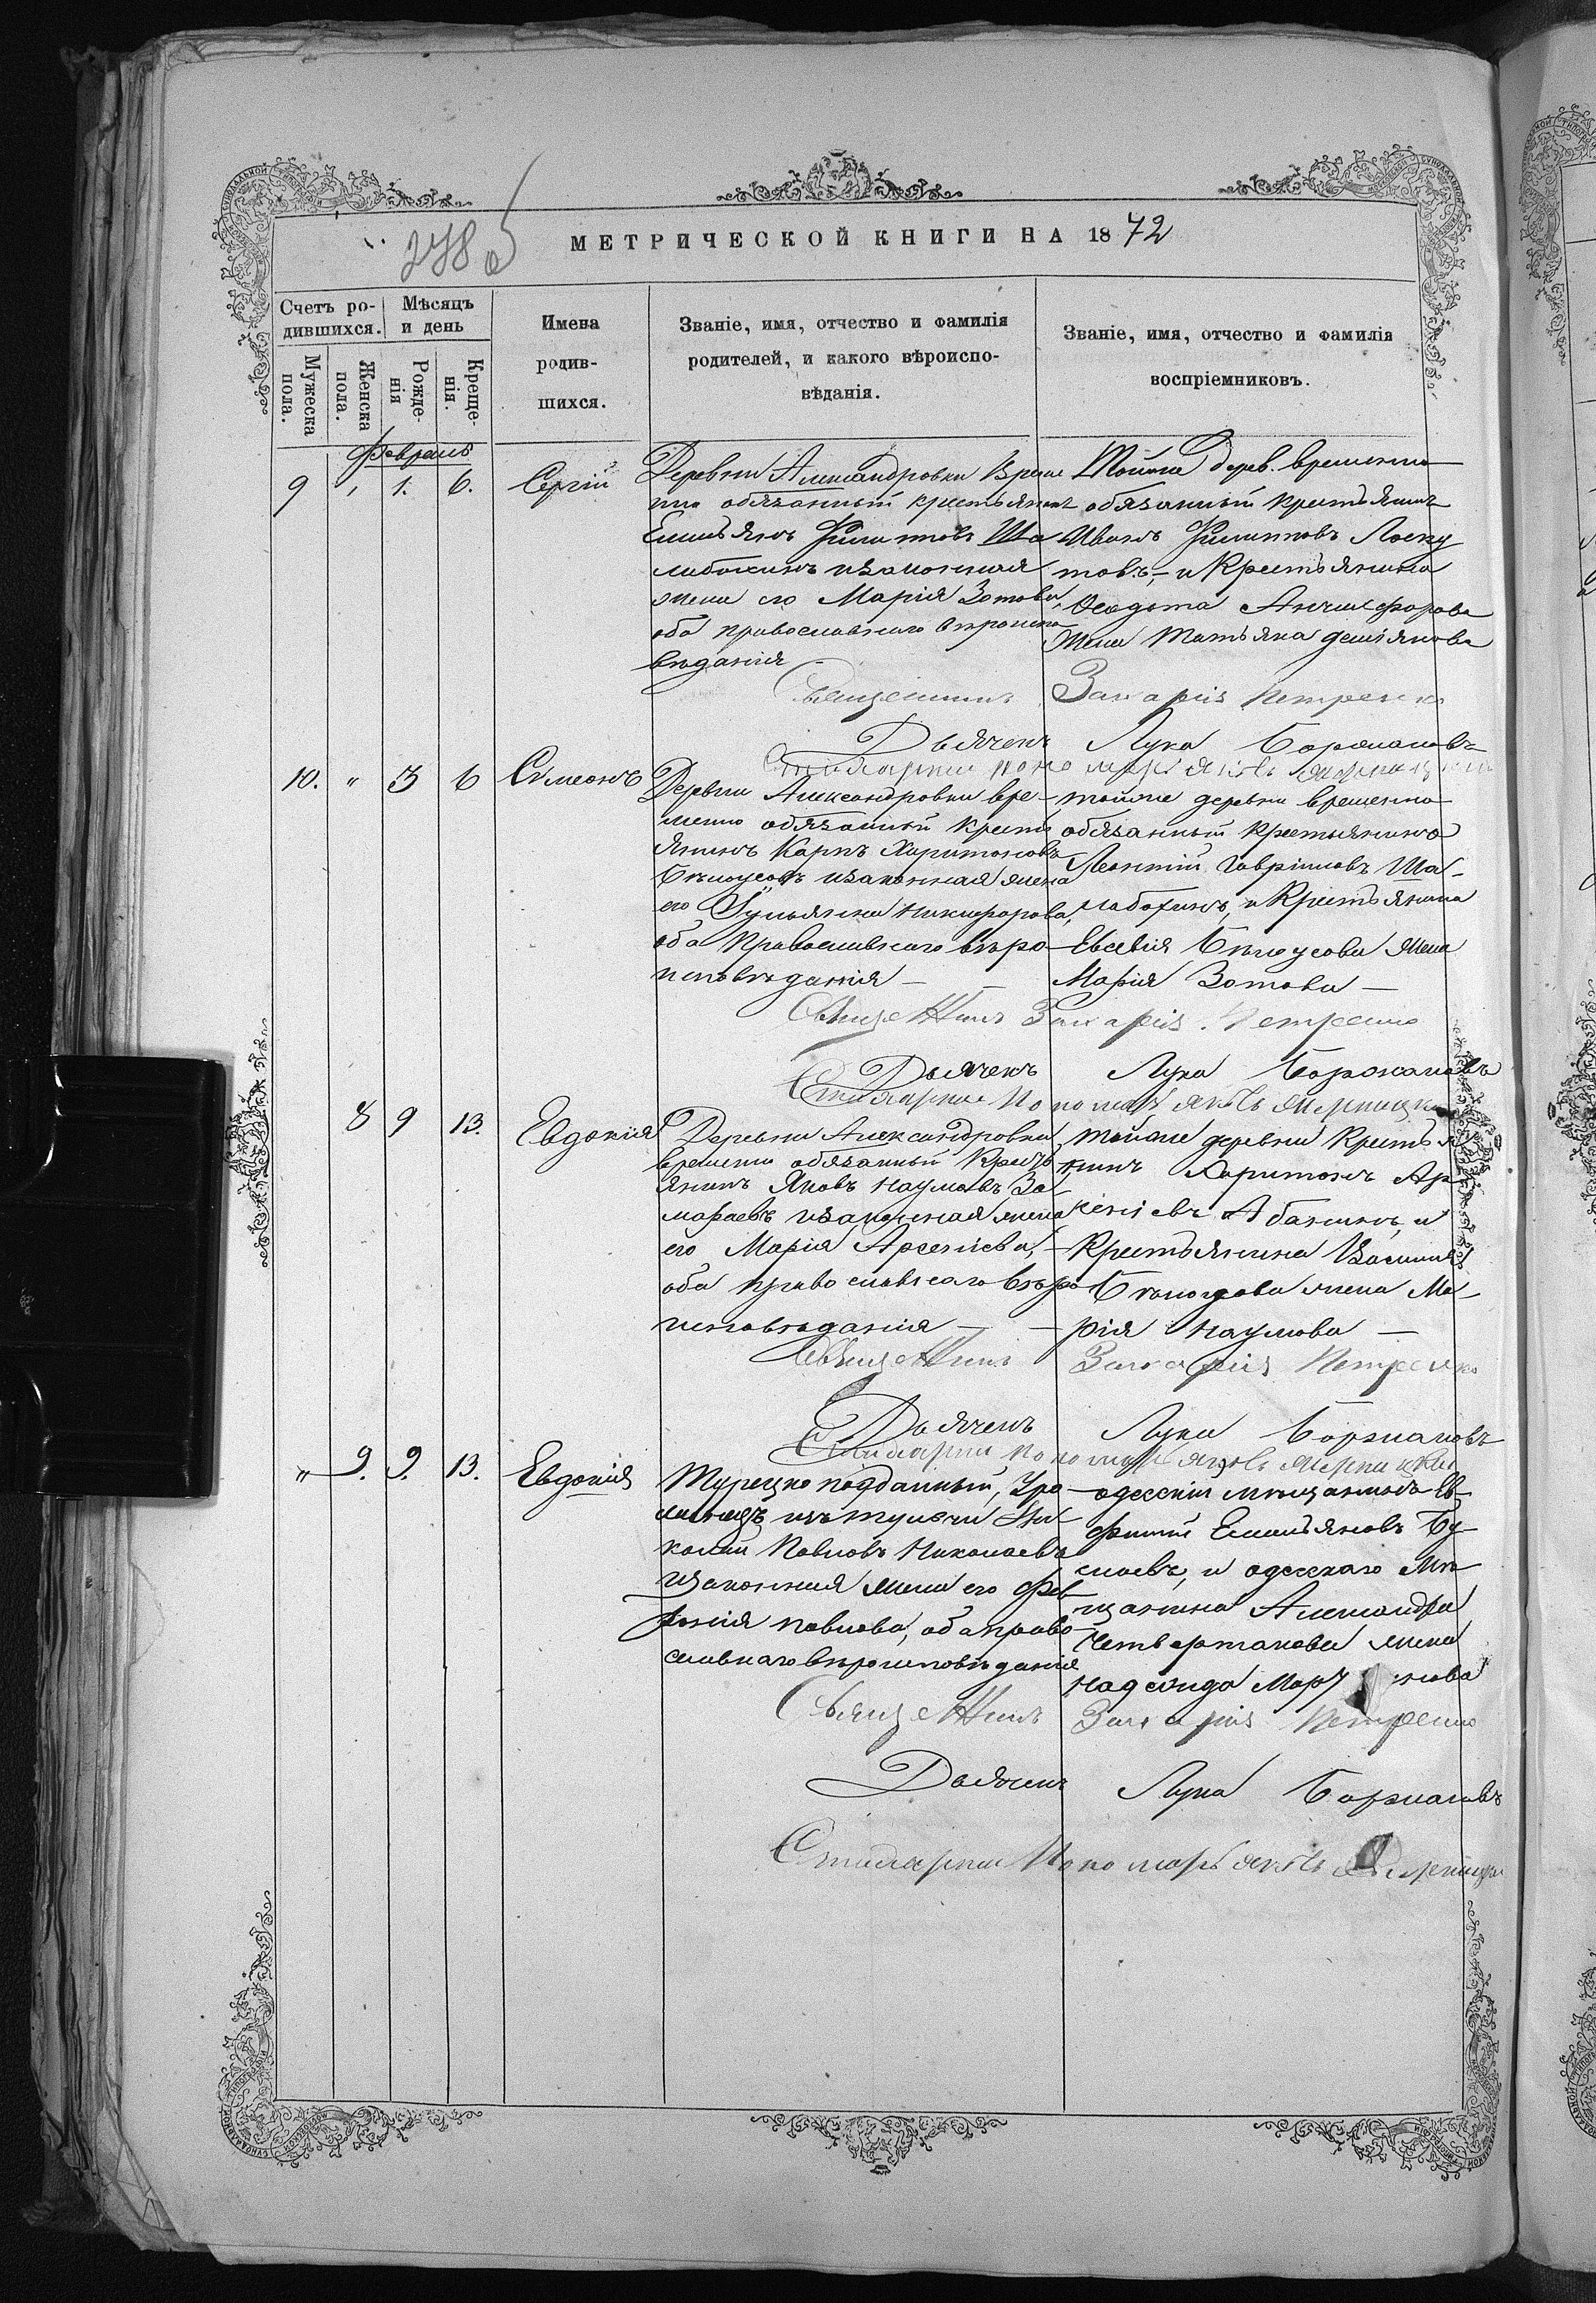 248 об
МЕТРИЧЕСКОЙ КНИГИ НА 1872
Счетъ ро-
дившихся.
Мѣсяцъ
и день
Мужеска
пола.
Женска
пола.
Рожде-
нія
Креще-
нія.
Имена
родив-
шихся.
Званіе, имя, отчество и фамилія
родителей, и какого вѣроиспо-
вѣданія.
Званіе, имя, отчество и фамилія
воспріемниковъ.
Февраль
9 " 1. 6. Сергій
Деревни Александровки Време
нно обязанный крестьянинъ
Емельянъ Филиповъ Ша
лабокинъ изаконная
жена его Марія Зотова,
оба православнаго вѣроиспо
вѣданія
Тойже дерев. временно
обязанный крестьянинъ
Иванъ Филиповъ Лоску
товъ,- и Крестьянина
Ѳеодота Анчифорова
жена Татьяна Демьянова
Священникъ Захарія Петренко
Дьячекъ Лука Боржаковъ
10. " 3 6 Симеонъ
Деревни Александровки вре-
менно обязанный Кресть
янинъ Карпъ Харитоновъ
Бѣлоусовъ изаконная жена
его Ульяна Никифорова,
оба Православнаго вѣро-
исповѣданія —
тойже деревни временно
обязанный Крестьянинъ
Леонтій Гавріиловъ Ша-
лабокинъ, и Крестьянина
Евсевія Бѣлоусова жена
Марія Зотова —
Священникъ Захарія Петренко
Дьячекъ Лука Боржаковъ
8 9 13. Евдокія
Деревни Александровки,
временно обязанный Кресть
янинъ Яковъ Наумовъ За
мараевъ изаконная жена
его Марія Арсеніева,-
оба православнаго вѣро
исповѣданія —
тойже деревни Кресть я
нинъ Харитонъ Ар
сеніевъ Абакинъ, и
Крестьянина Василія
Бѣлоусова жена Ма-
рія Наумова —
Священникъ Захарія Петренко
Дьячекъ Лука Боржаковъ
" 9. 9. 13. Евдокія
Турецко подданный, Уро-
женецъ изъ Тульчи Ни
колай Павловъ Николаевъ
изаконная жена его Фев
ронія Павлова, оба право
славнаго вѣроисповѣданія
одесскій мѣщанинъ Ев-
фимій Емельяновъ
и одесскаго Мѣ
щанина Александра
Четвертакова жена
Надежда
Священникъ Захарія Петренко
Дьячекъ Лука Боржаковъ